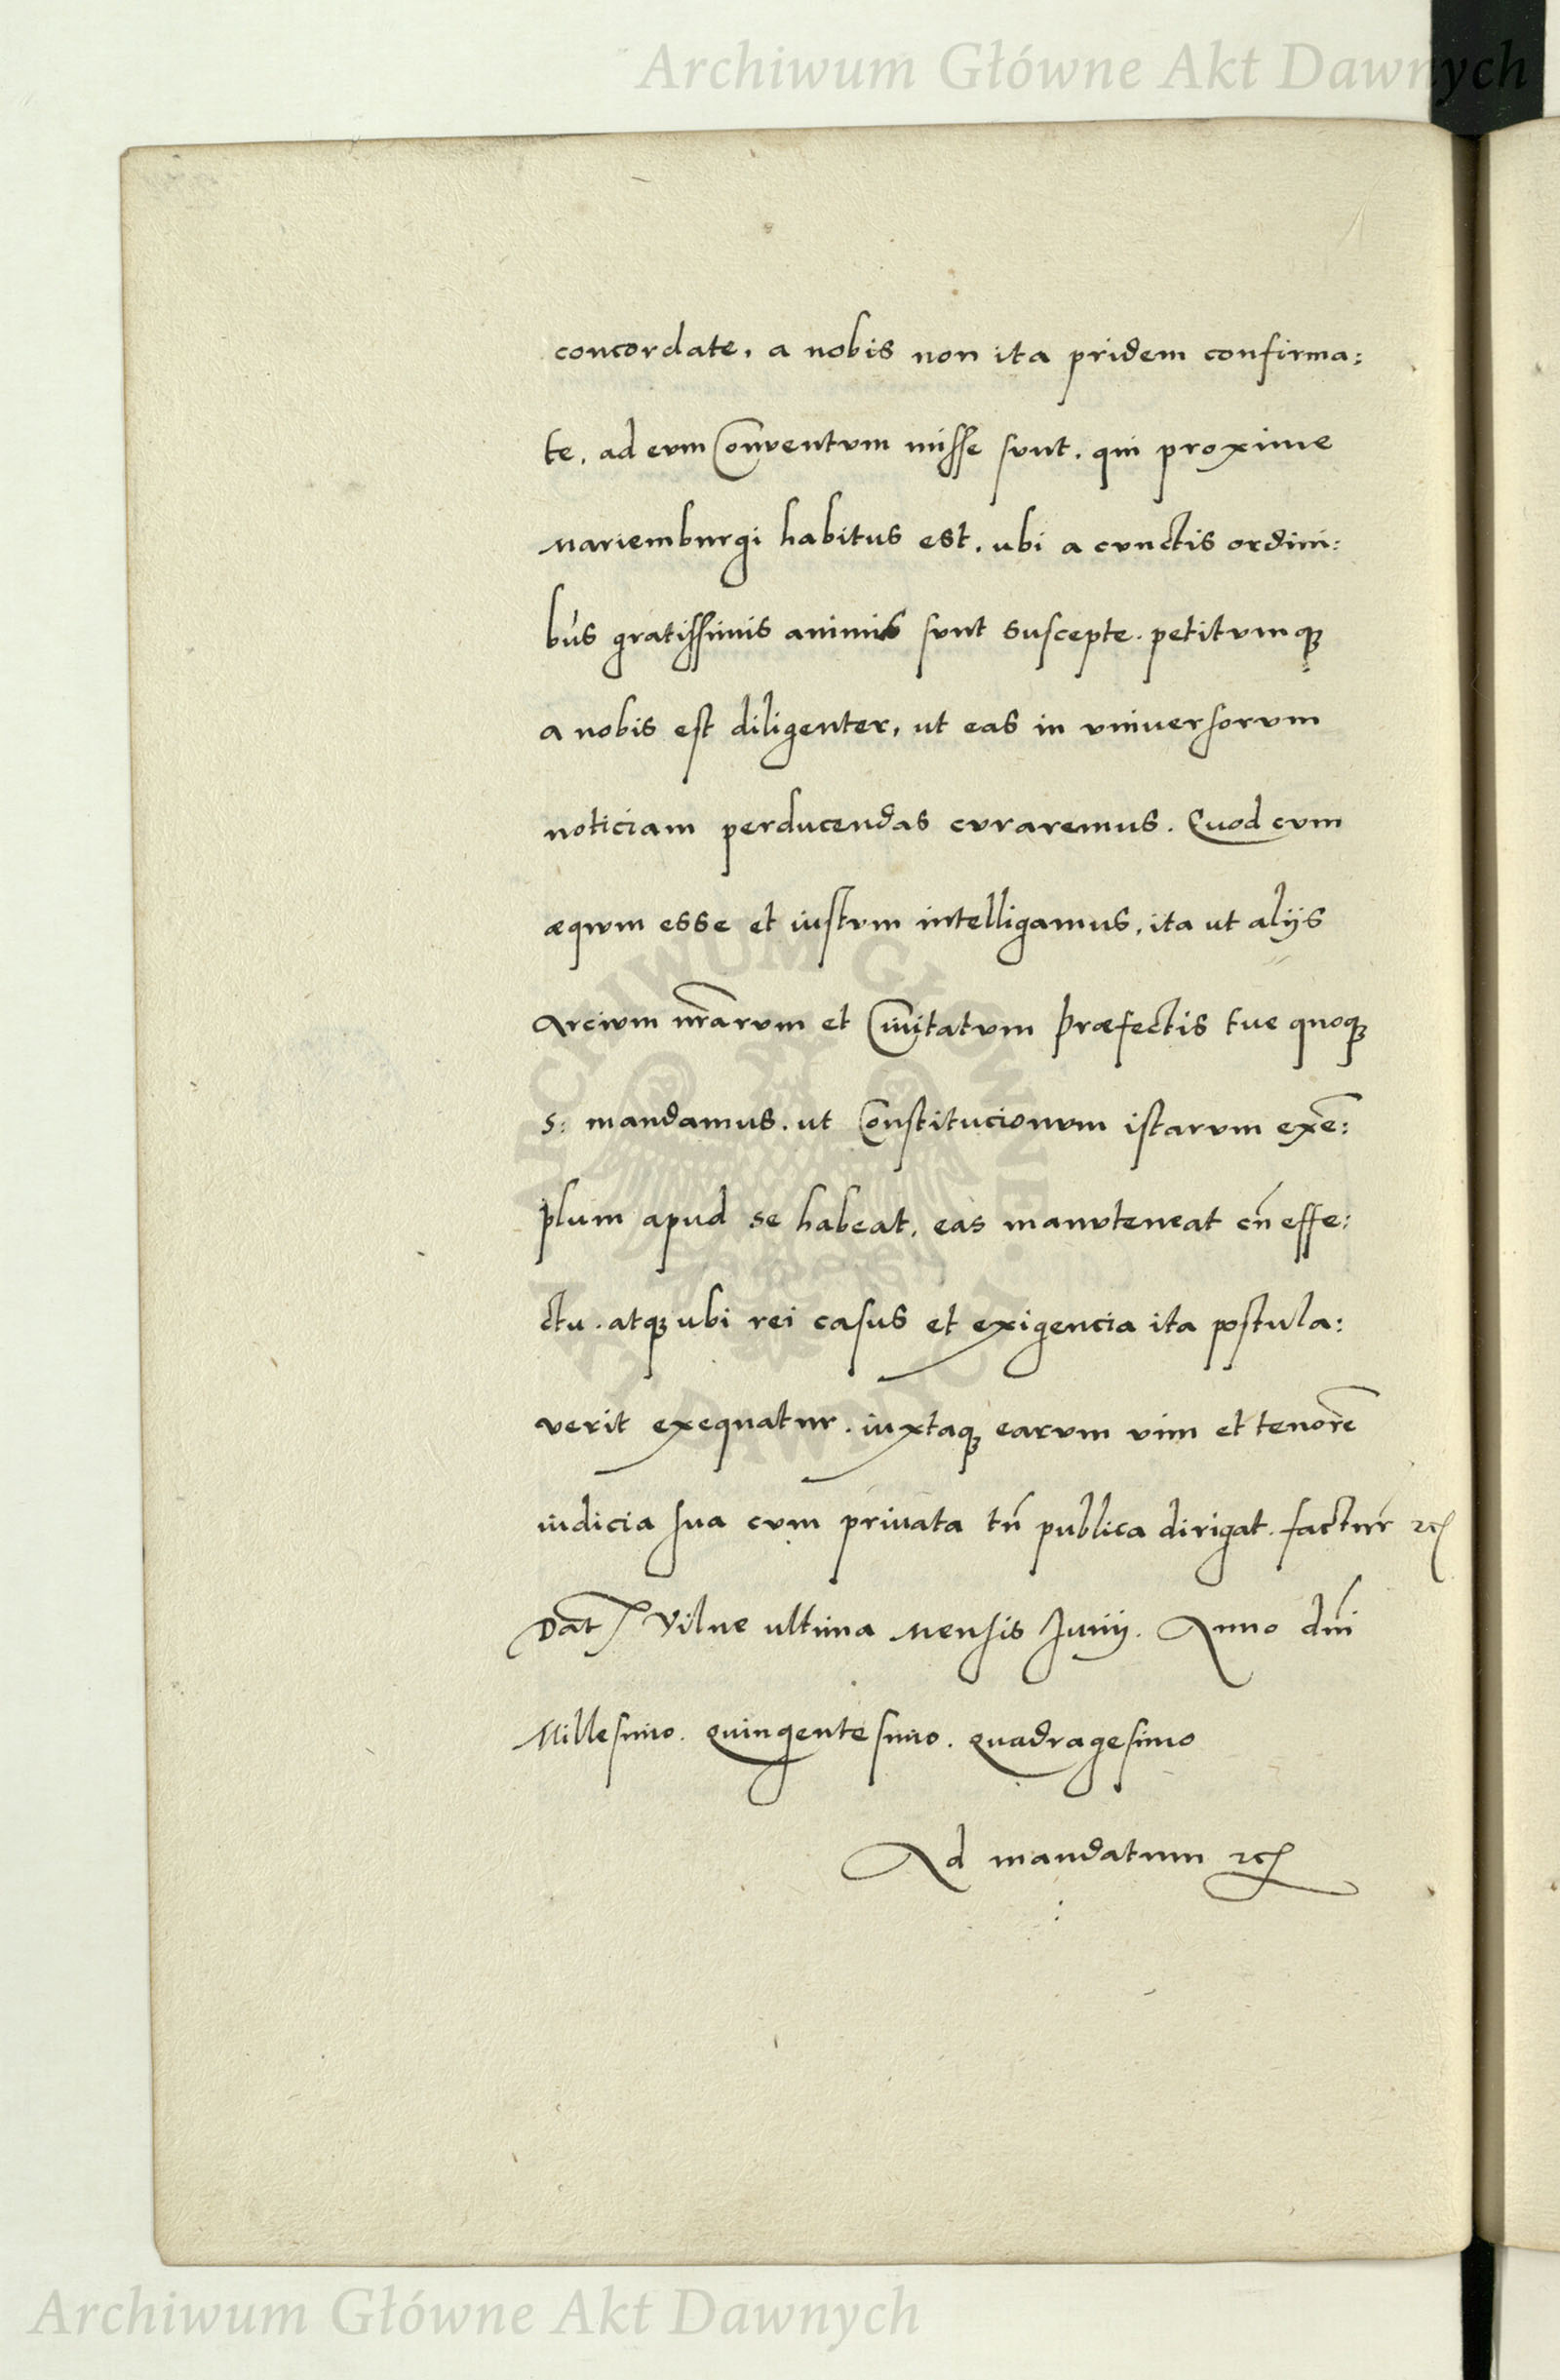 Archiwum Główne Akt Dawnych
concordate, a nobis non ita pridem confirma:
te, ad eum Conuentum misse sunt, qui proxime
Mariemburgi habitus est, ubi a cunctis ordini:
bus gratissimis animis sunt suscepte. petitumq₃
a nobis est diligenter, ut eas in uniuersorum
noticiam perducendas curaremus. Quod cum
æquum esse et iustum intelligamus, ita ut alijs
Arcium nr̄arum et Ciuitatum Præfectis tue quoq₃
S: mandamus, ut Constitucionum istarum exē:
plum apud se habeat, eas manuteneat cū effe:
ctu, atq₃ ubi rei casus et exigencia ita postula:
verit exequatur, iuxtaq₃ earum uim et tenorē
iudicia sua cum priuata tū publica dirigat. factur̄ ⁊c̄
Dat̄ Vilne ultima Mensis Junij. Anno dn̄i
Millesimo. Quingentesimo. Quadragesimo
Ad mandatum ⁊c̄
ARCHIWUM GŁÓWNE AKT DAWNYCH
Archiwum Główne Akt Dawnych